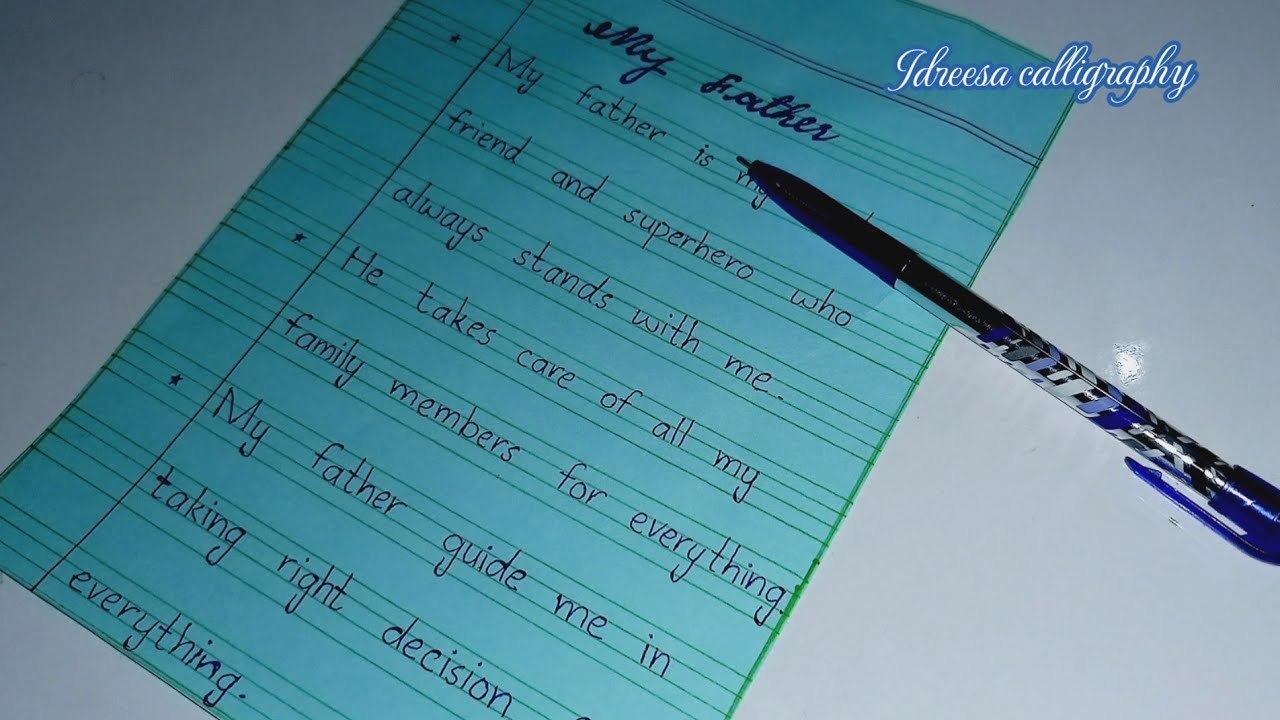 Idreesa calligraphy
My Father
★ My father is my
friend and superhero who
always stands with me.
★ He takes care of all my
family members for everything.
★ My father guide me in
taking right decision
everything.